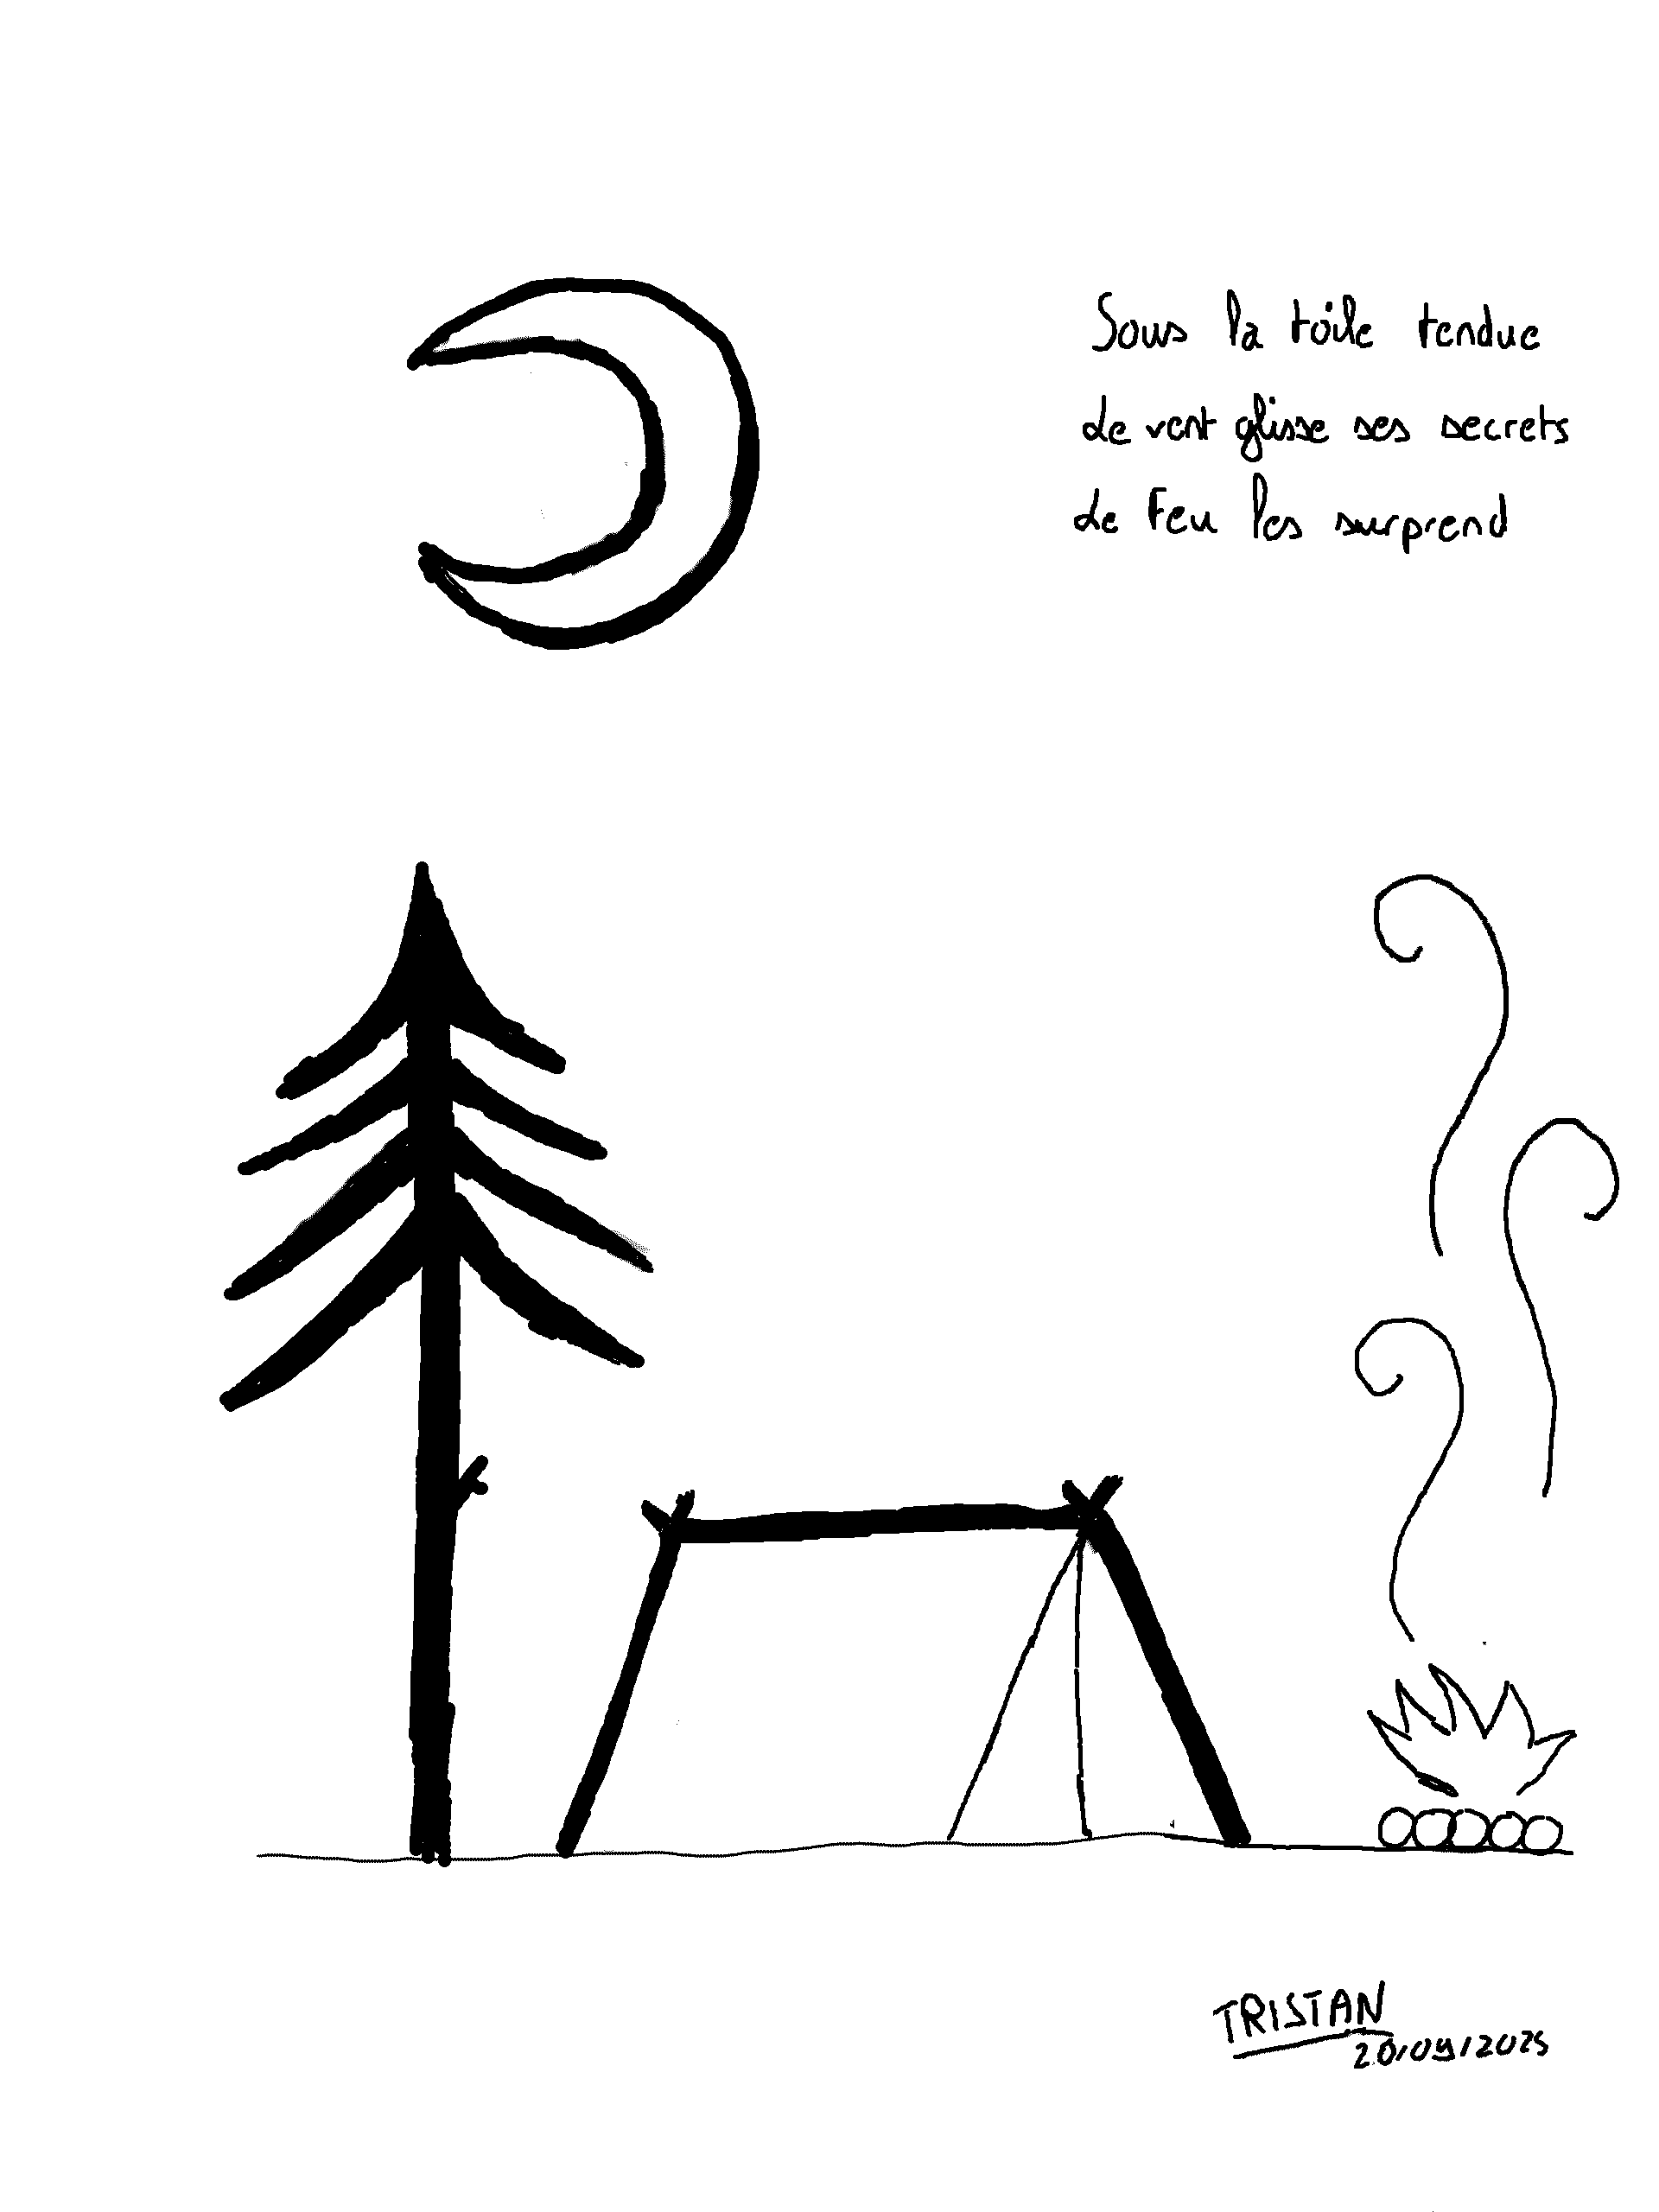 Sous la toile tendue
Le vent glisse ses secrets
Le feu les surprend
TRISTAN
20/09/2025